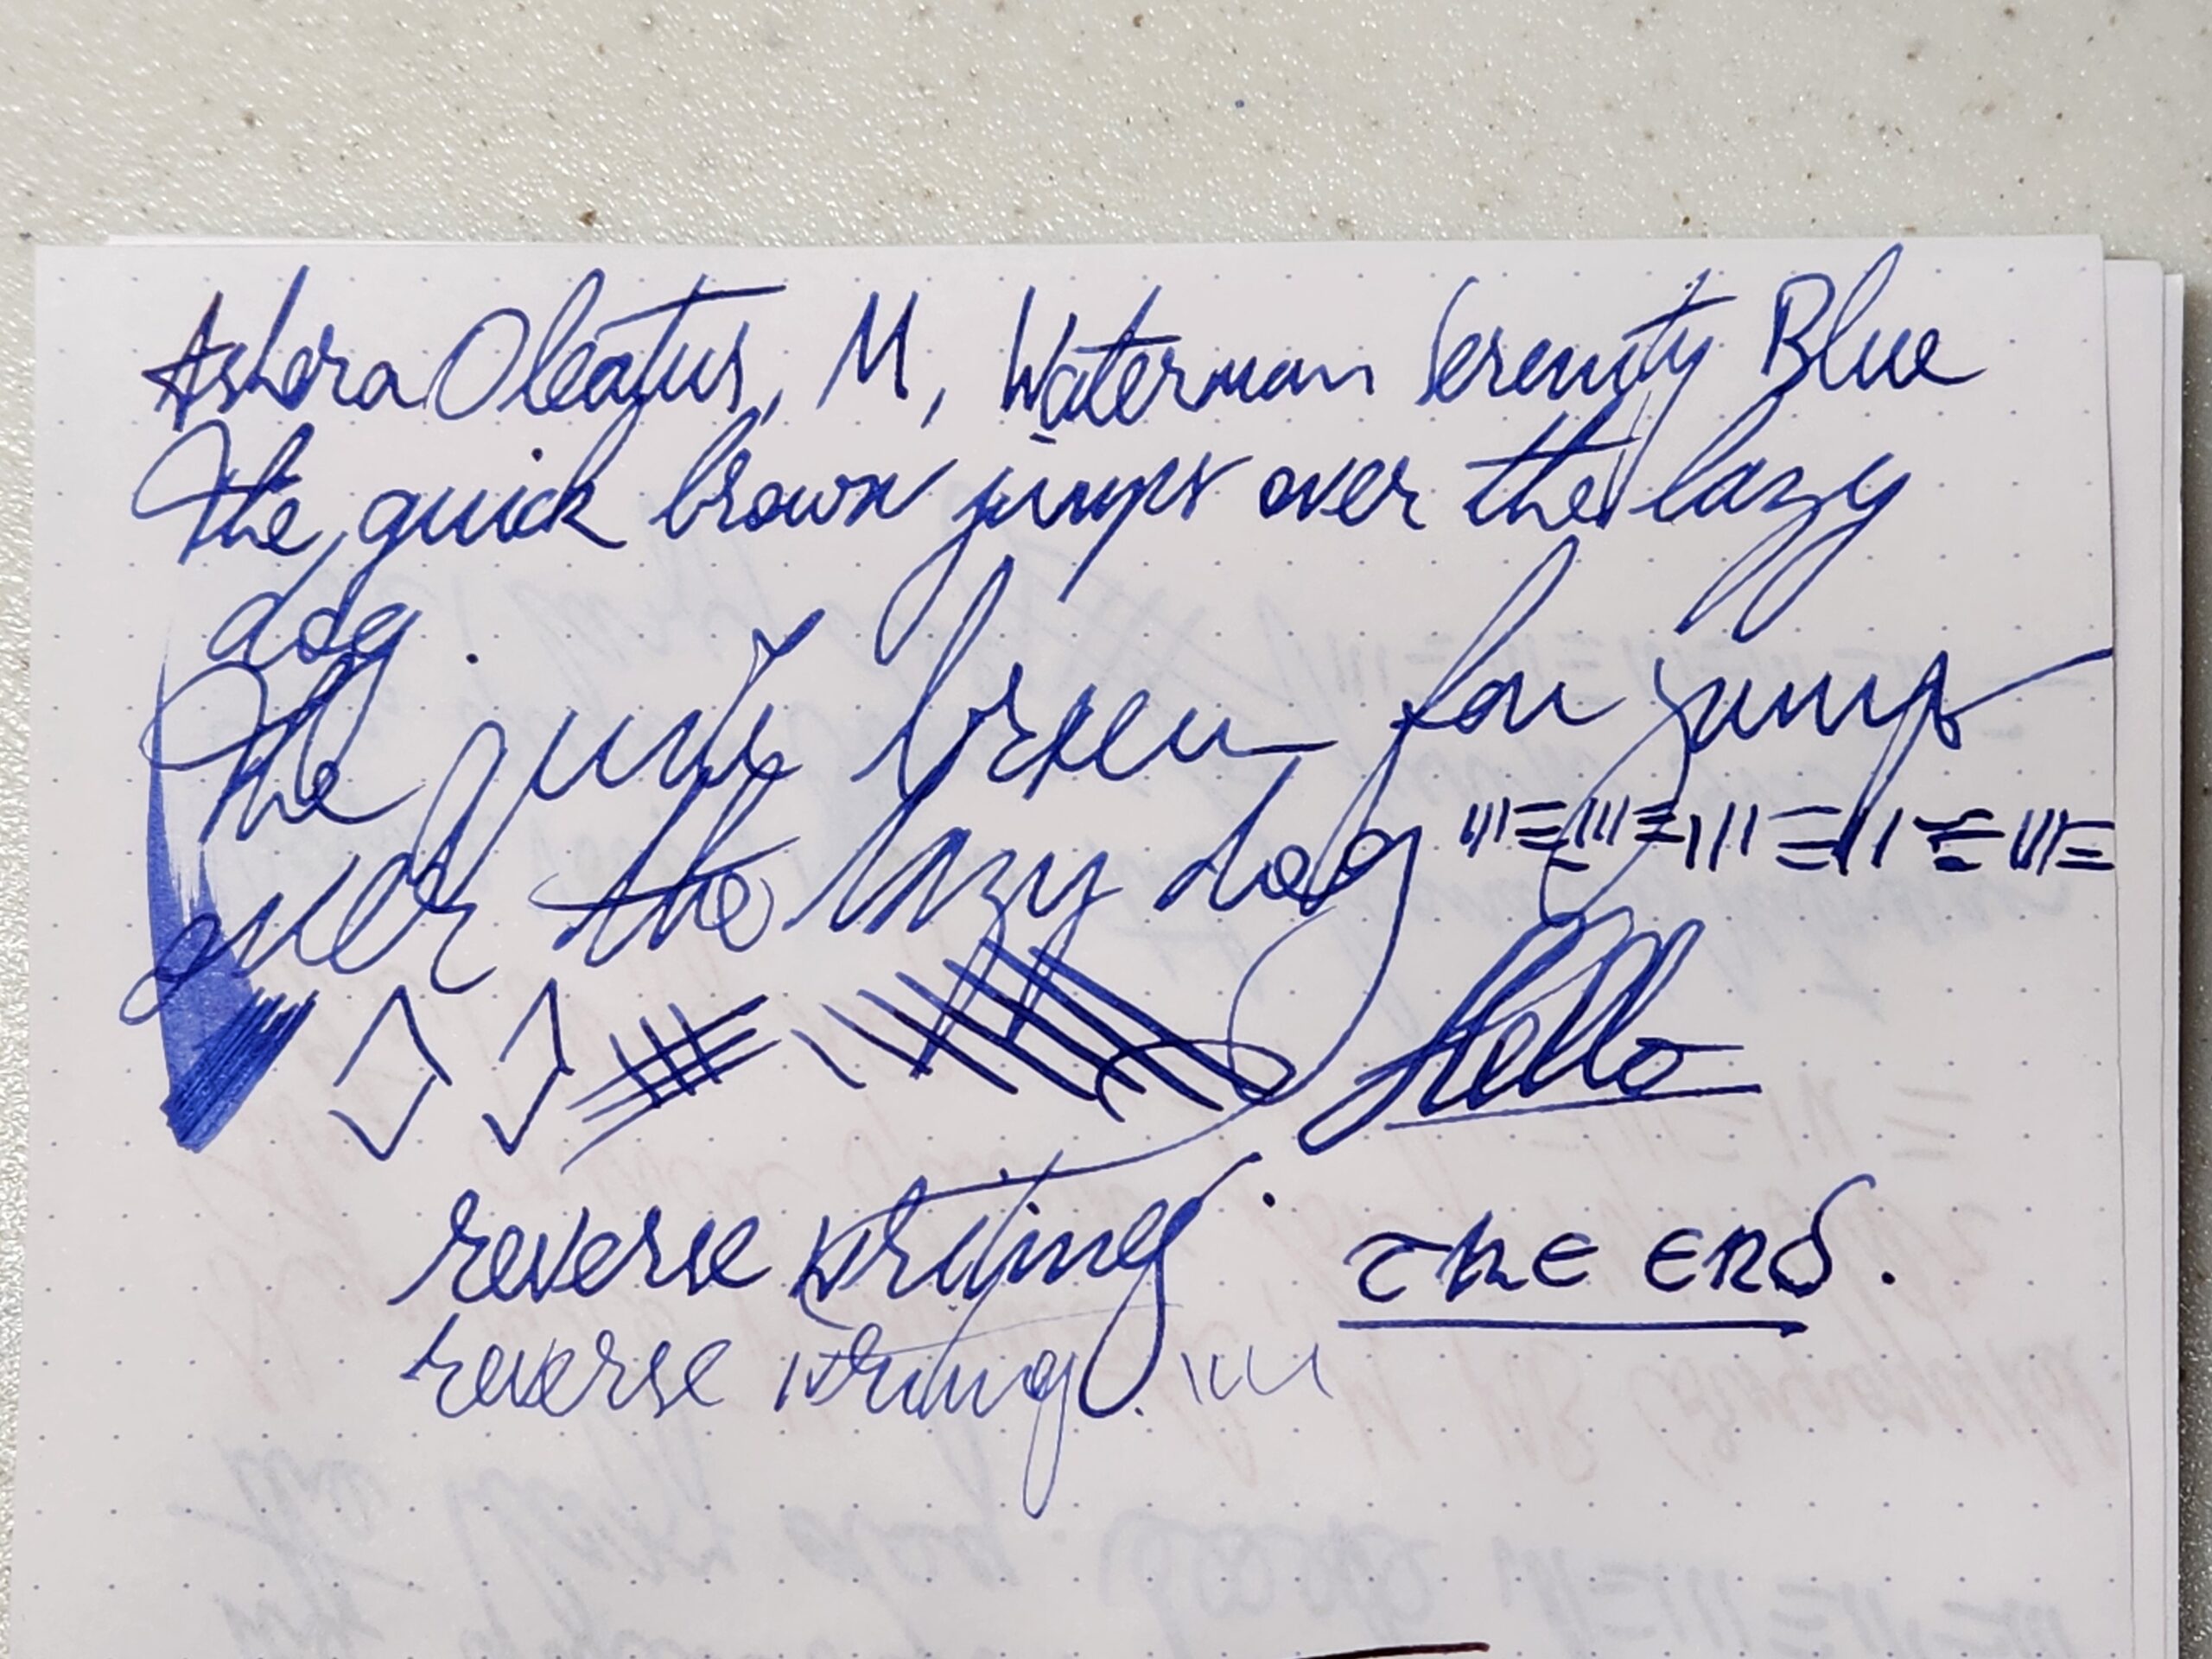 Ashera Oleatus, M, Waterman Serenity Blue
The quick brown jumps over the lazy
dog.
The quick brown fox jumps
over the lazy dog
Hello
reverse writing. The End.
reverse writing.